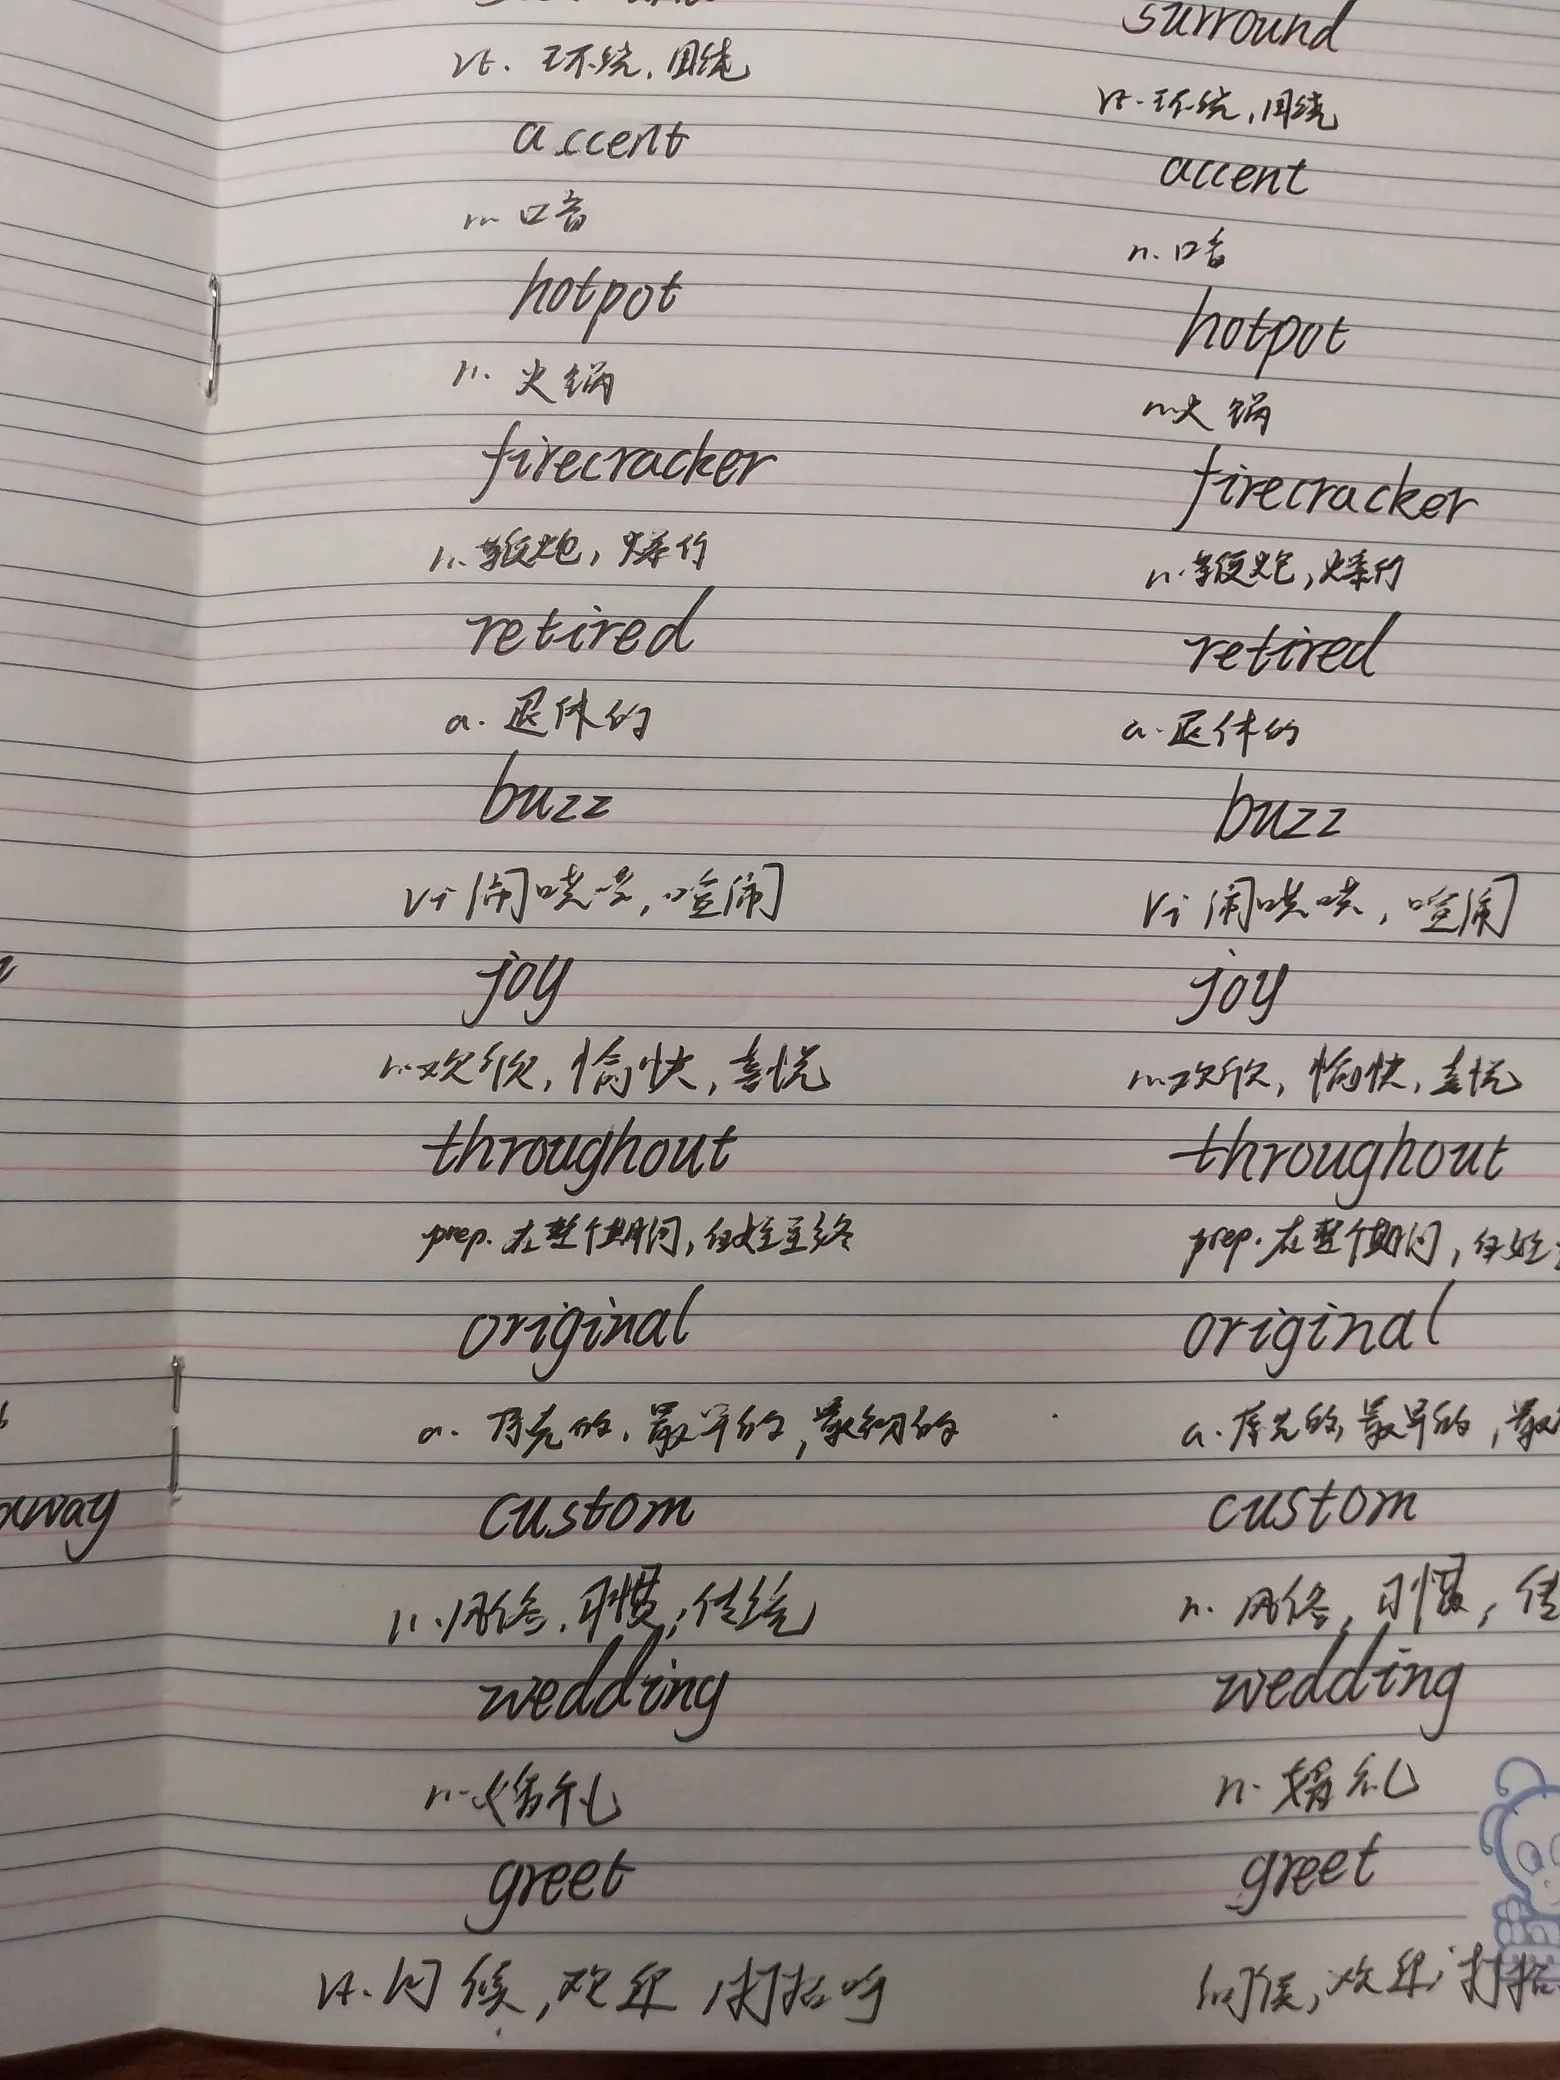 surround
vt. 环绕,围绕 vt. 环绕,围绕
accent accent
n. 口音 n. 口音
hotpot hotpot
n. 火锅 n. 火锅
firecracker firecracker
n. 鞭炮, 爆竹 n. 鞭炮, 爆竹
retired retired
a. 退休的 a. 退休的
buzz buzz
vi 闹哄哄, 喧闹 vi 闹哄哄, 喧闹
joy joy
n. 欢欣, 愉快, 喜悦 n. 欢欣, 愉快, 喜悦
throughout throughout
prep. 在整个期间, 自始至终 prep. 在整个期间, 自始
original original
a. 原先的, 最早的, 最初的 a. 原先的, 最早的, 最
away custom custom
n. 风俗, 习惯, 传统 n. 风俗, 习惯, 传
wedding wedding
n. 婚礼 n. 婚礼
greet greet
vt. 问候, 欢迎, 打招呼 问候, 欢迎, 打招